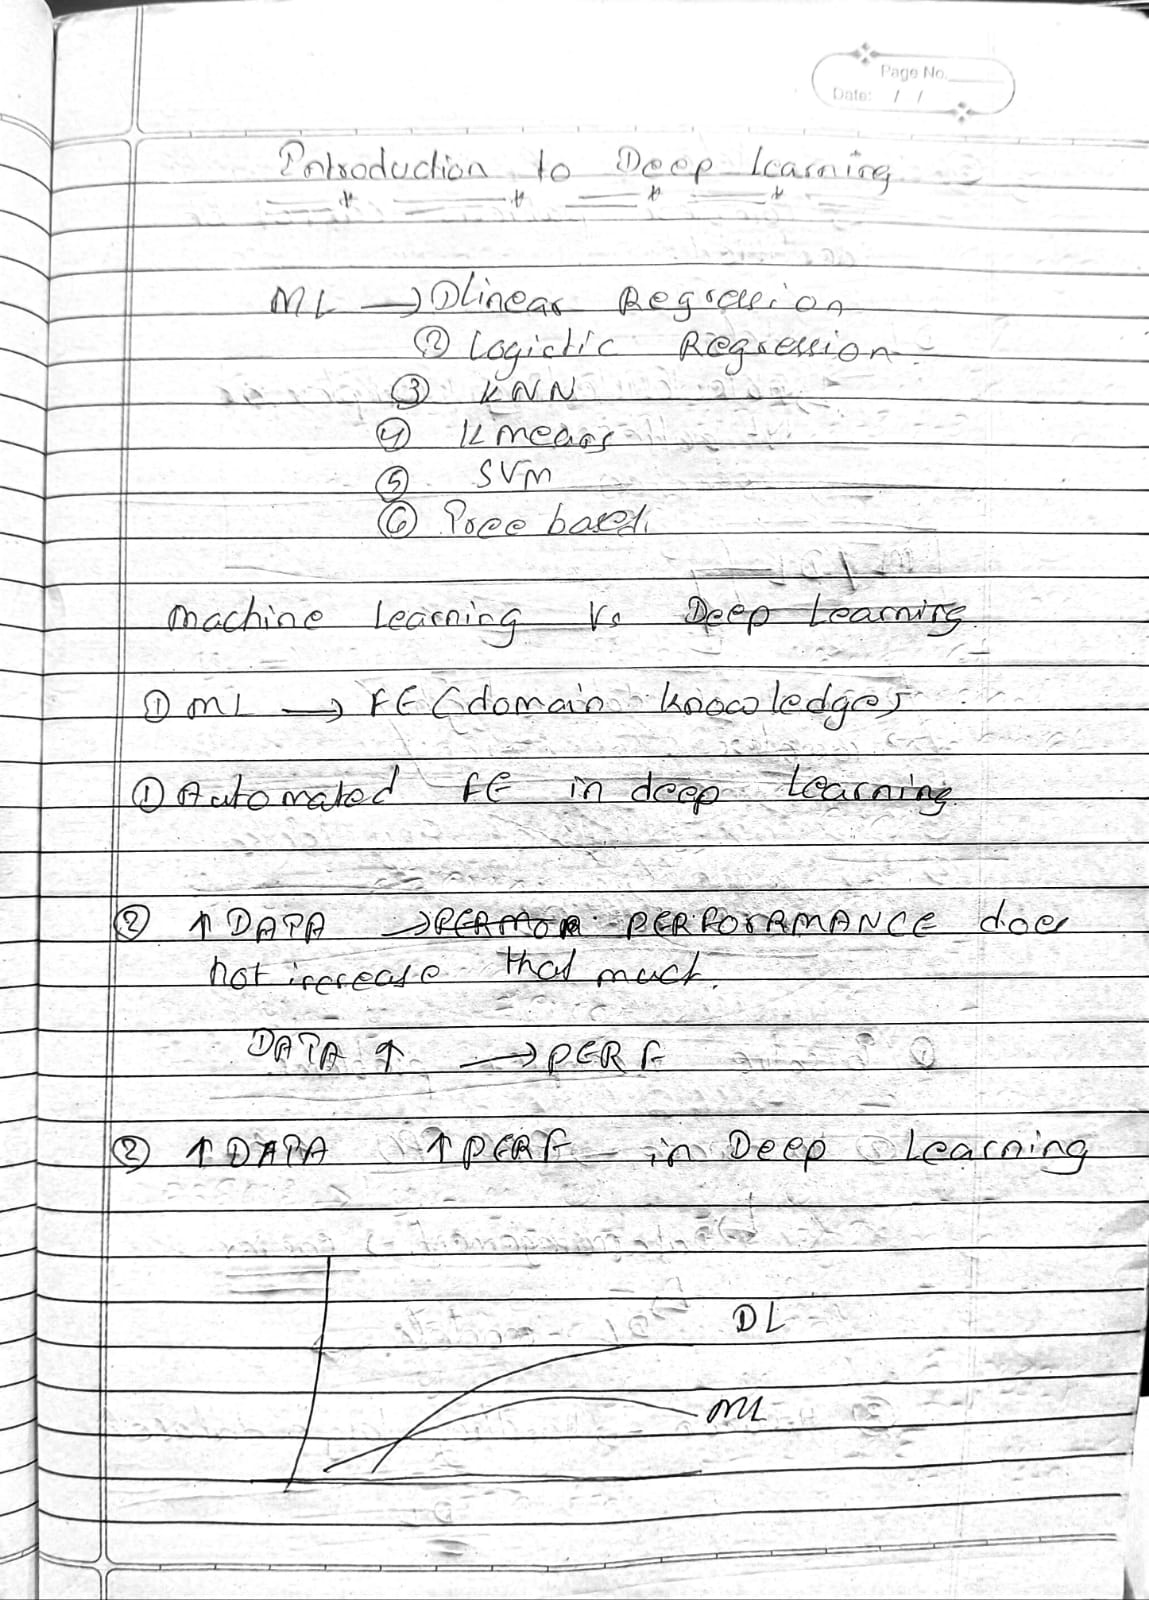 Page No.
Date: / /
Introduction to Deep Learning
ML → ① Linear Regression
② Logistic Regression
③ KNN
④ K means
⑤ SVM
⑥ Tree based.
Machine Learning Vs Deep Learning
① ML → FE (domain knowledge)
① Automated FE in deep Learning
② ↑ DATA → PERFORMANCE does
not increase that much.
DATA ↑ → PERF
② ↑ DATA ↑ PERF in Deep Learning
DL
ML